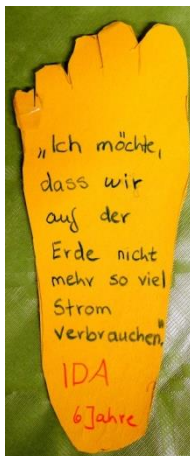 „Ich möchte,
dass wir
auf der
Erde nicht
mehr so viel
Strom
verbrauchen."
IDA
6 Jahre